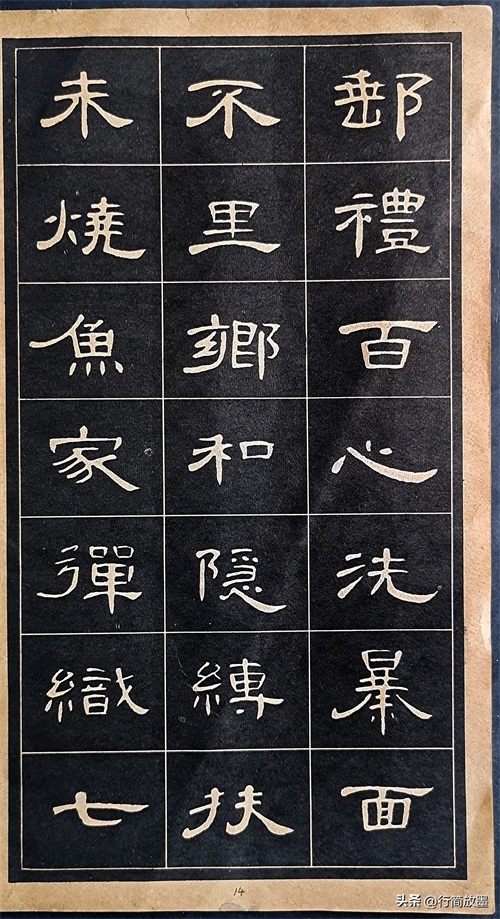 郵禮百心洗暴面
不里鄉和隐縛扶
未燒魚家彈織七
14
头条 @行简放墨